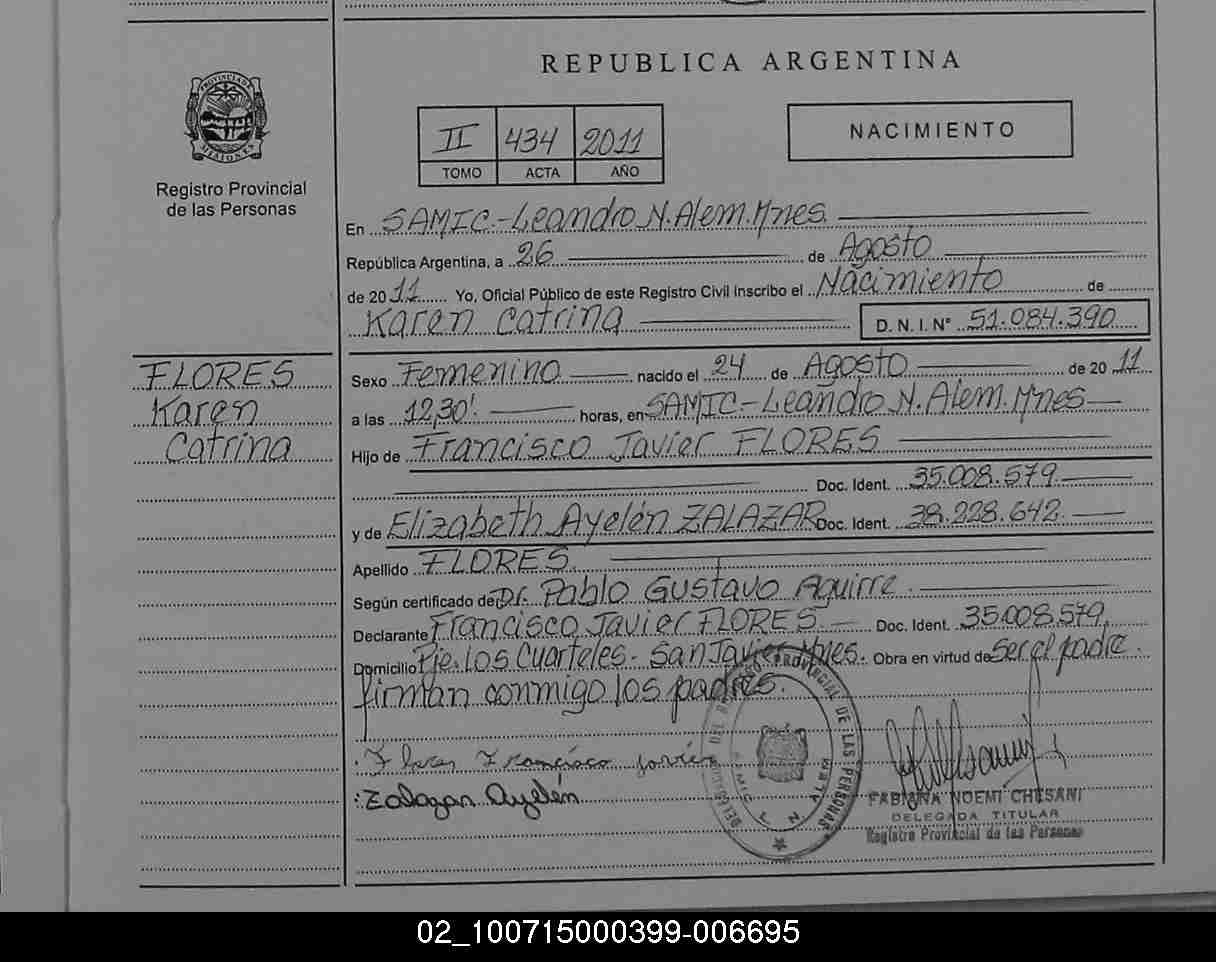 REPUBLICA ARGENTINA
PROVINCIA DE MISIONES
Registro Provincial
de las Personas
II 434 2011
TOMO ACTA AÑO
NACIMIENTO
En SAMIC.-Leandro N. Alem. Mnes.
República Argentina, a 26 de Agosto
de 2011 Yo, Oficial Público de este Registro Civil inscribo el Nacimiento de
Karen Catrina D. N. I. N° 51.084.390
FLORES
Karen
Catrina
Sexo Femenino nacido el 24 de Agosto de 2011
a las 12,30' horas, en SAMIC-Leandro N. Alem. Mnes
Hijo de Francisco Javier FLORES
Doc. Ident. 35.008.579
y de Elizabeth Ayelén ZALAZAR Doc. Ident. 38.228.642
Apellido FLORES
Según certificado de Dr. Pablo Gustavo Aguirre
Declarante Francisco Javier FLORES Doc. Ident. 35.008.579
Domicilio Pje. Los Cuarteles - San Javier Mnes. Obra en virtud de Ser el padre.
firman conmigo los padres.
Flores Francisco Javier
Zalazar Ayelén
PROVINCIAL DE LAS PERSONAS
FABIANA NOEMI CHESANI
DELEGADA TITULAR
Registro Provincial de las Personas
02_100715000399-006695